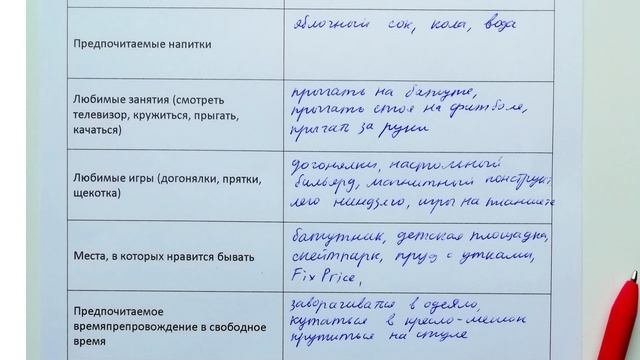 Предпочитаемые напитки
яблочный сок, кола, вода
Любимые занятия (смотреть
телевизор, кружиться, прыгать,
качаться)
прыгать на батуте,
прыгать стоя на фитболе,
прыгать за руки
Любимые игры (догонялки, прятки,
щекотка)
догонялки, настольный
бильярд, магнитный конструкт
лего ниндзяго, игры на планшете
Места, в которых нравится бывать
батутник, детская площадка,
скейтпарк, пруд с утками,
Fix Price,
Предпочитаемое
времяпрепровождение в свободное
время
заворачиватся в одеяло,
кутаться в кресло-мешок
крутиться на стуле